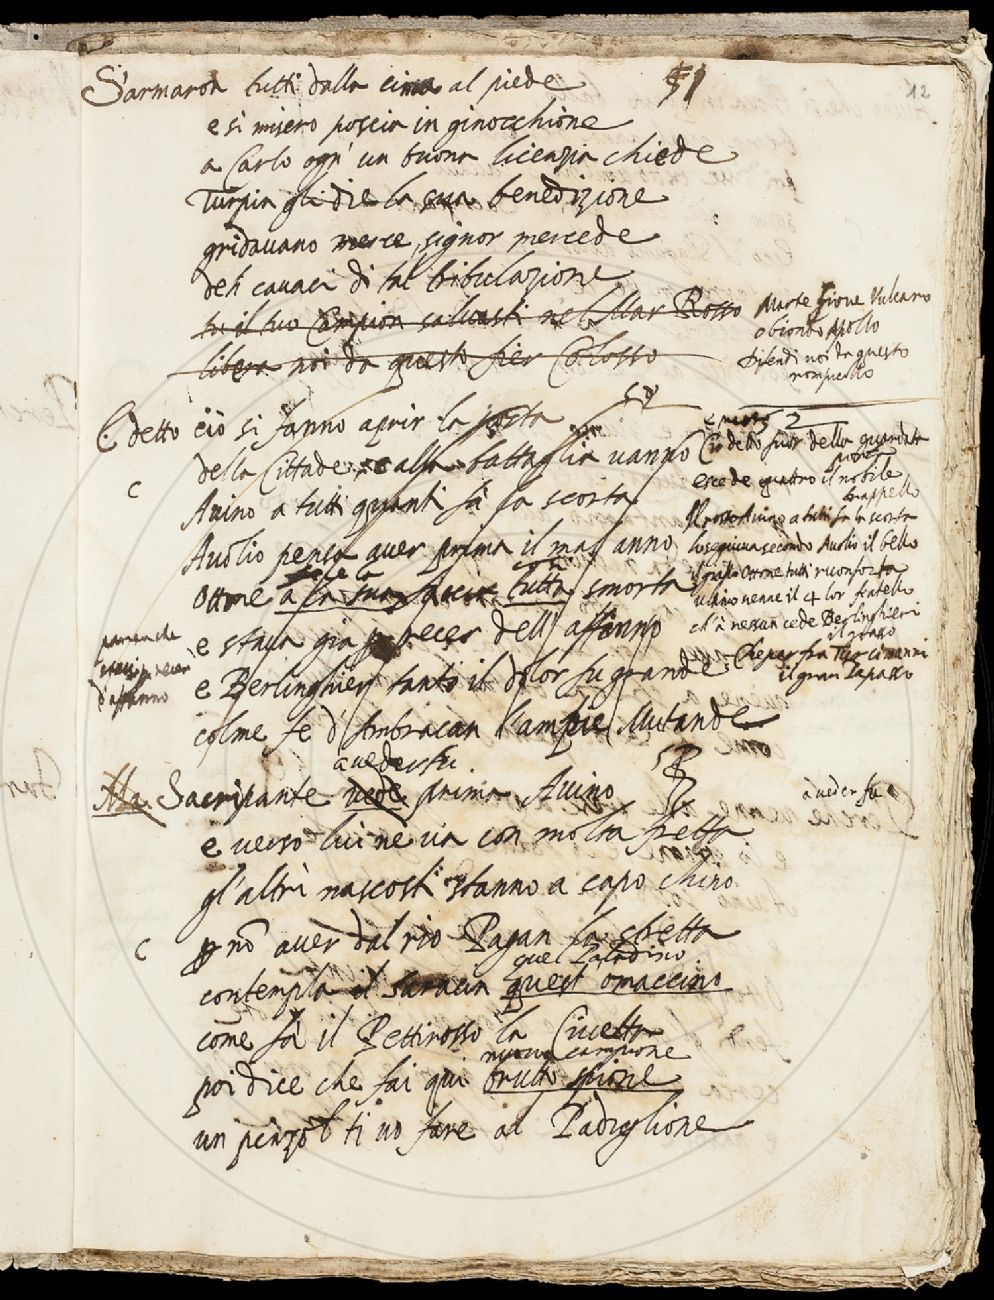 S'armaron tutti dalla cima al piede
51
12
e si misero poscia in ginocchione
a Carlo ogn' un buona licenzia chiede
Turpin gli die la sua benedizione
gridavano merce, signor mercede
deh cavaci di tal tribulazione
tu il tuo Campion salvasti nel Mar Rosso
libera noi da questo fier Colosso
Marte Giove Vulcano
o biondo Apollo
difendi noi da questo
E detto ciò si fanno aprir la porta
della Cittade, e alla battaglia vanno
Avino a tutti quanti fà la scorta
Avolio pensa aver prima il mal anno
Ottone a la sua faccia tutta smorta
fece la
e stava già per recer dell' affanno
e Berlinghier tanto il dolor fu grande
colme fe d'Ambracan l'ampie Mutande
C
parea che
d'affanno
52
Ciò detto fuor della guardata
porta
escede quattro il nobile
Drappello
Il rosso Avino a tutti fa la scorta
lo seguiva secondo Avolio il bello
il grasso Ottone tutti riconforta
ultimo venne il 4 lor fratello
ch'à nessun cede Berlinghieri
il grasso
Che par fra Turcimanni
il gran Bapasso
Ma Sacripante vede prima Avino
a veder fu
53
a veder fu
e verso lui ne va con molta fretta
gl'altri nascosti stanno a capo chino
C
per nõ aver dal rio Pagan la stretta
quel Paladino
contempla il Saracin quest omaccino
come fà il Pettirosso la Civetta
nuovo campione
poi dice che fai qui brutto spione
un penzol ti vo fare al Padiglione